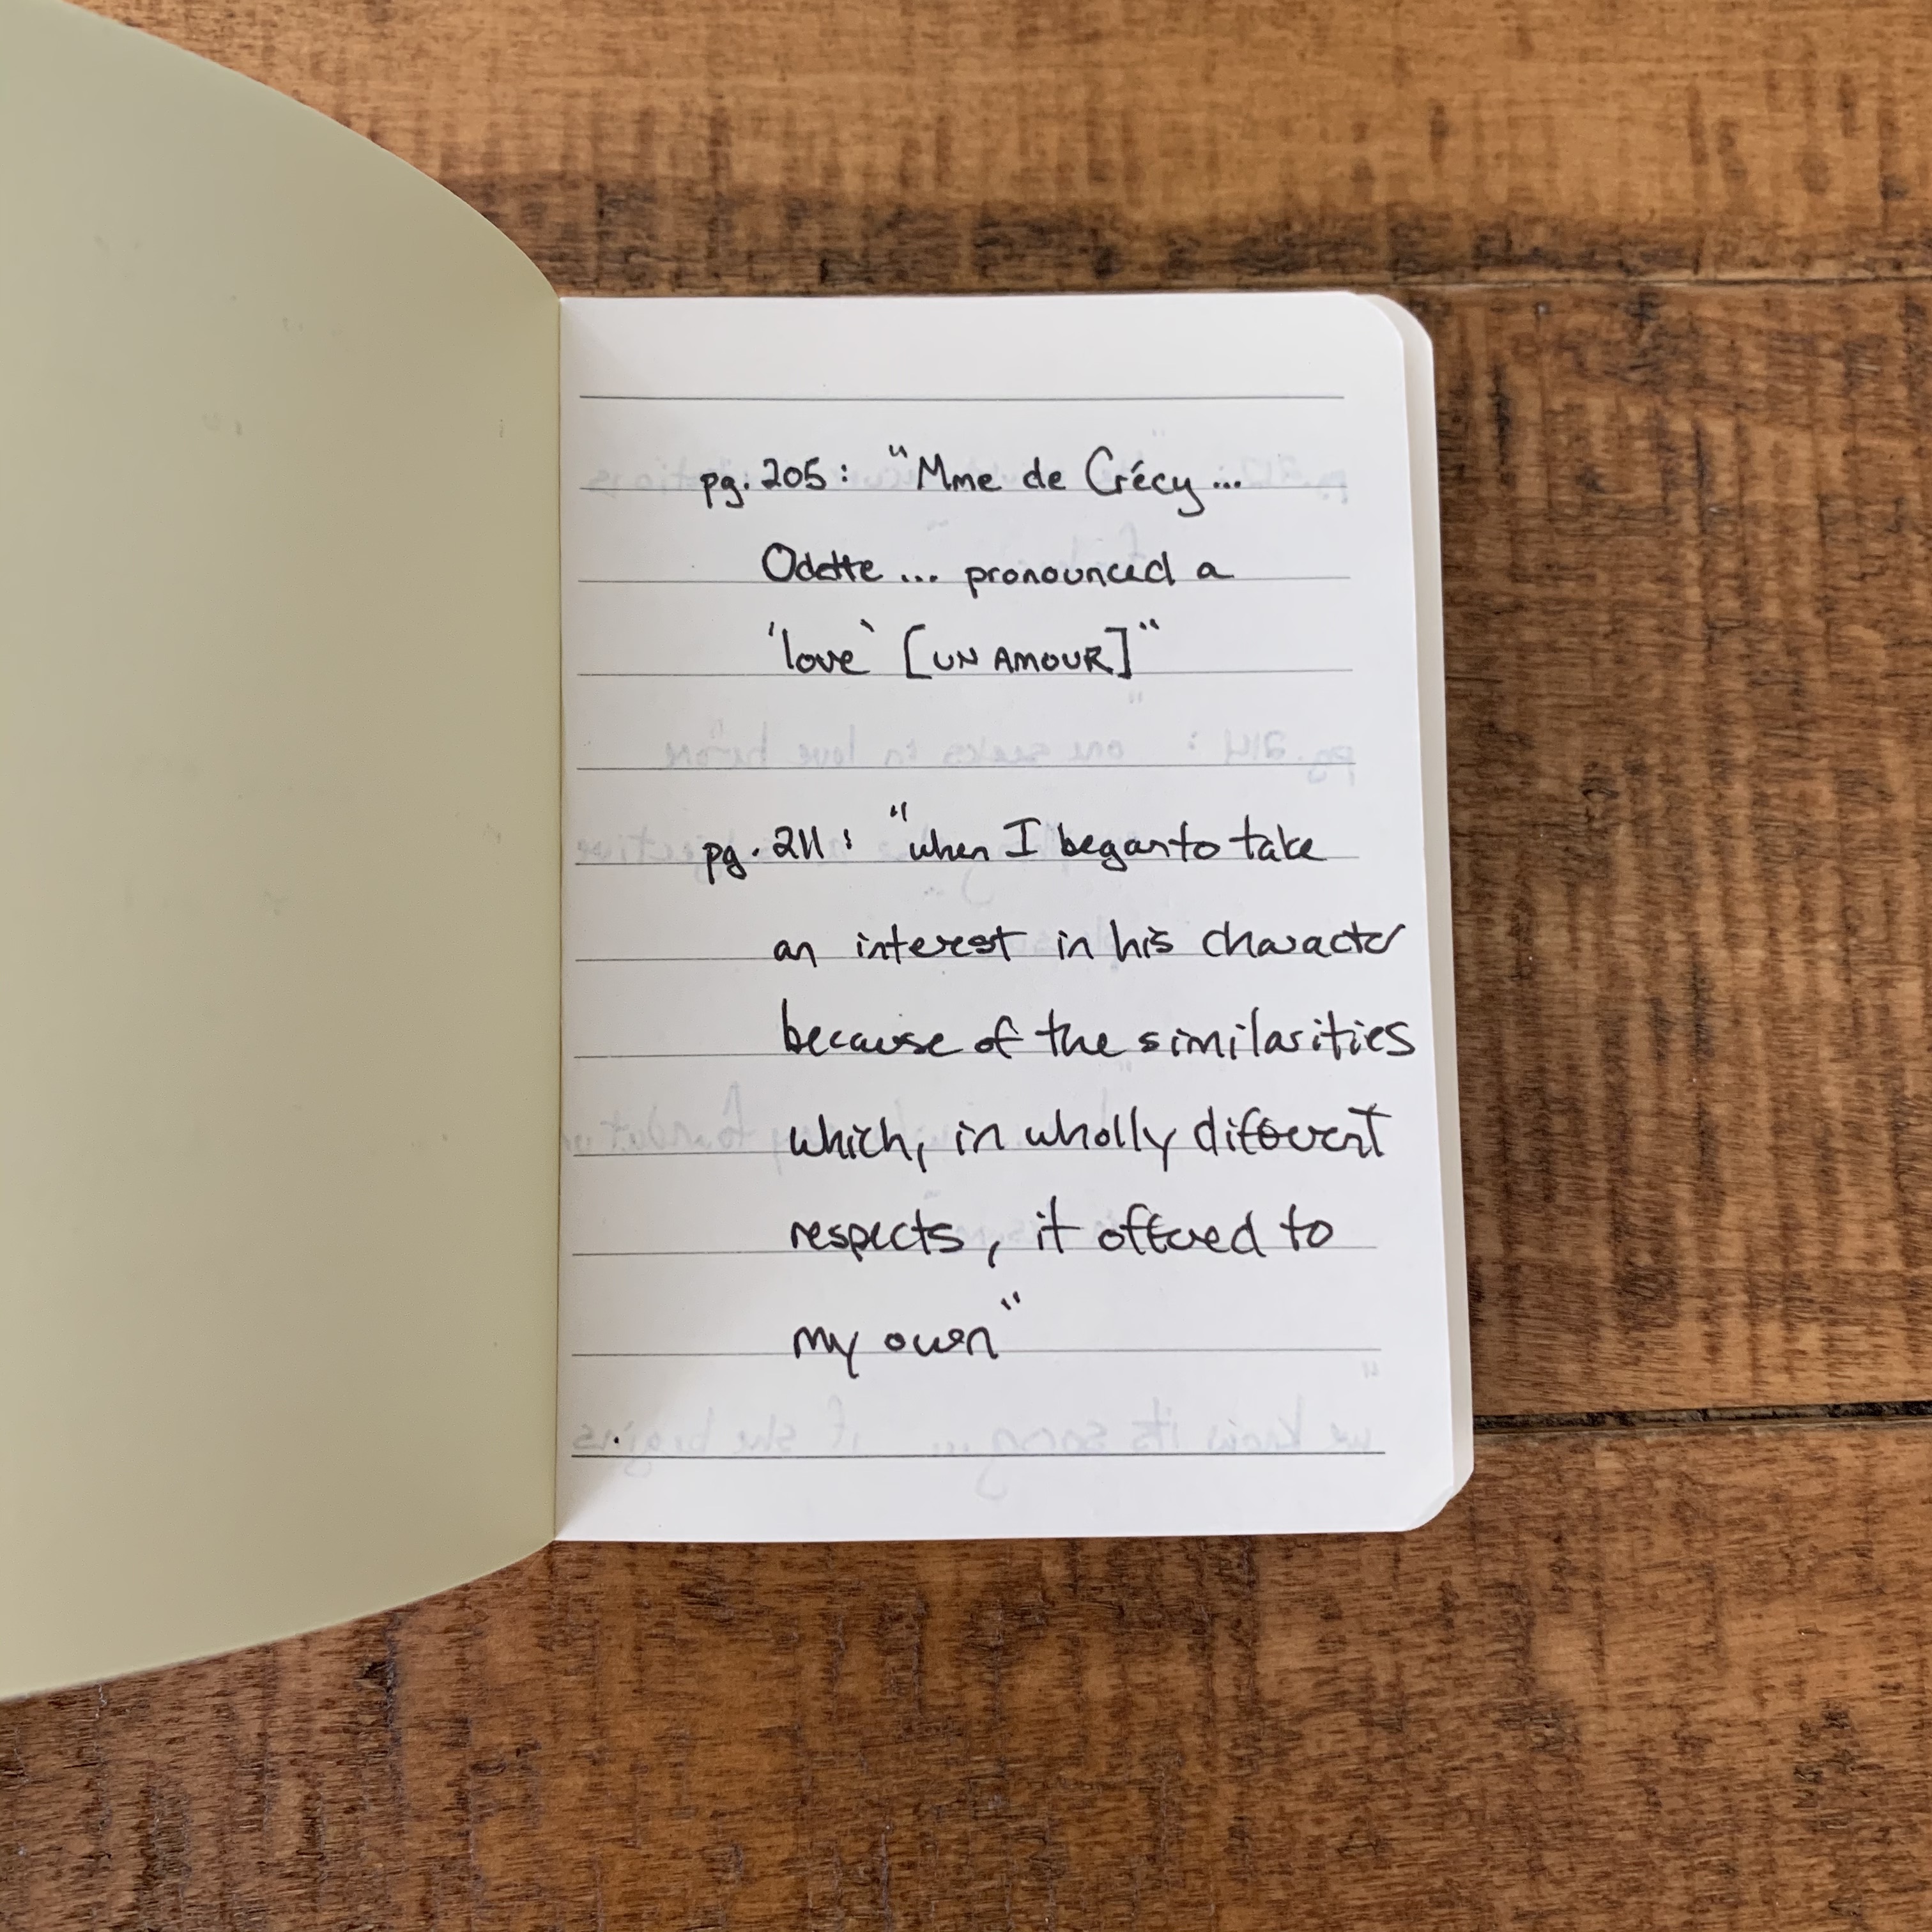 pg. 205: "Mme de Crécy...
Odette ... pronounced a
'love' [UN AMOUR]"
pg. 211: "when I began to take
an interest in his character
because of the similarities
which, in wholly different
respects, it offered to
my own"